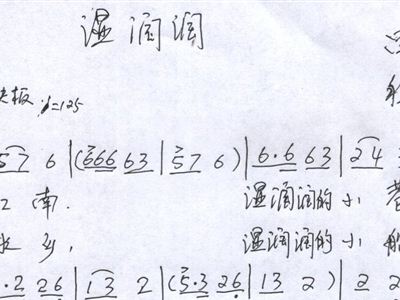 湿润润
快板 ♩=125
57 6 | (666 63 | 57 6) | 6.6 63 | 24
江南. 湿润润的小巷
水乡, 湿润润的小船
.2 26 | 13 2 | (5.3 26 | 13 2) | 2 2